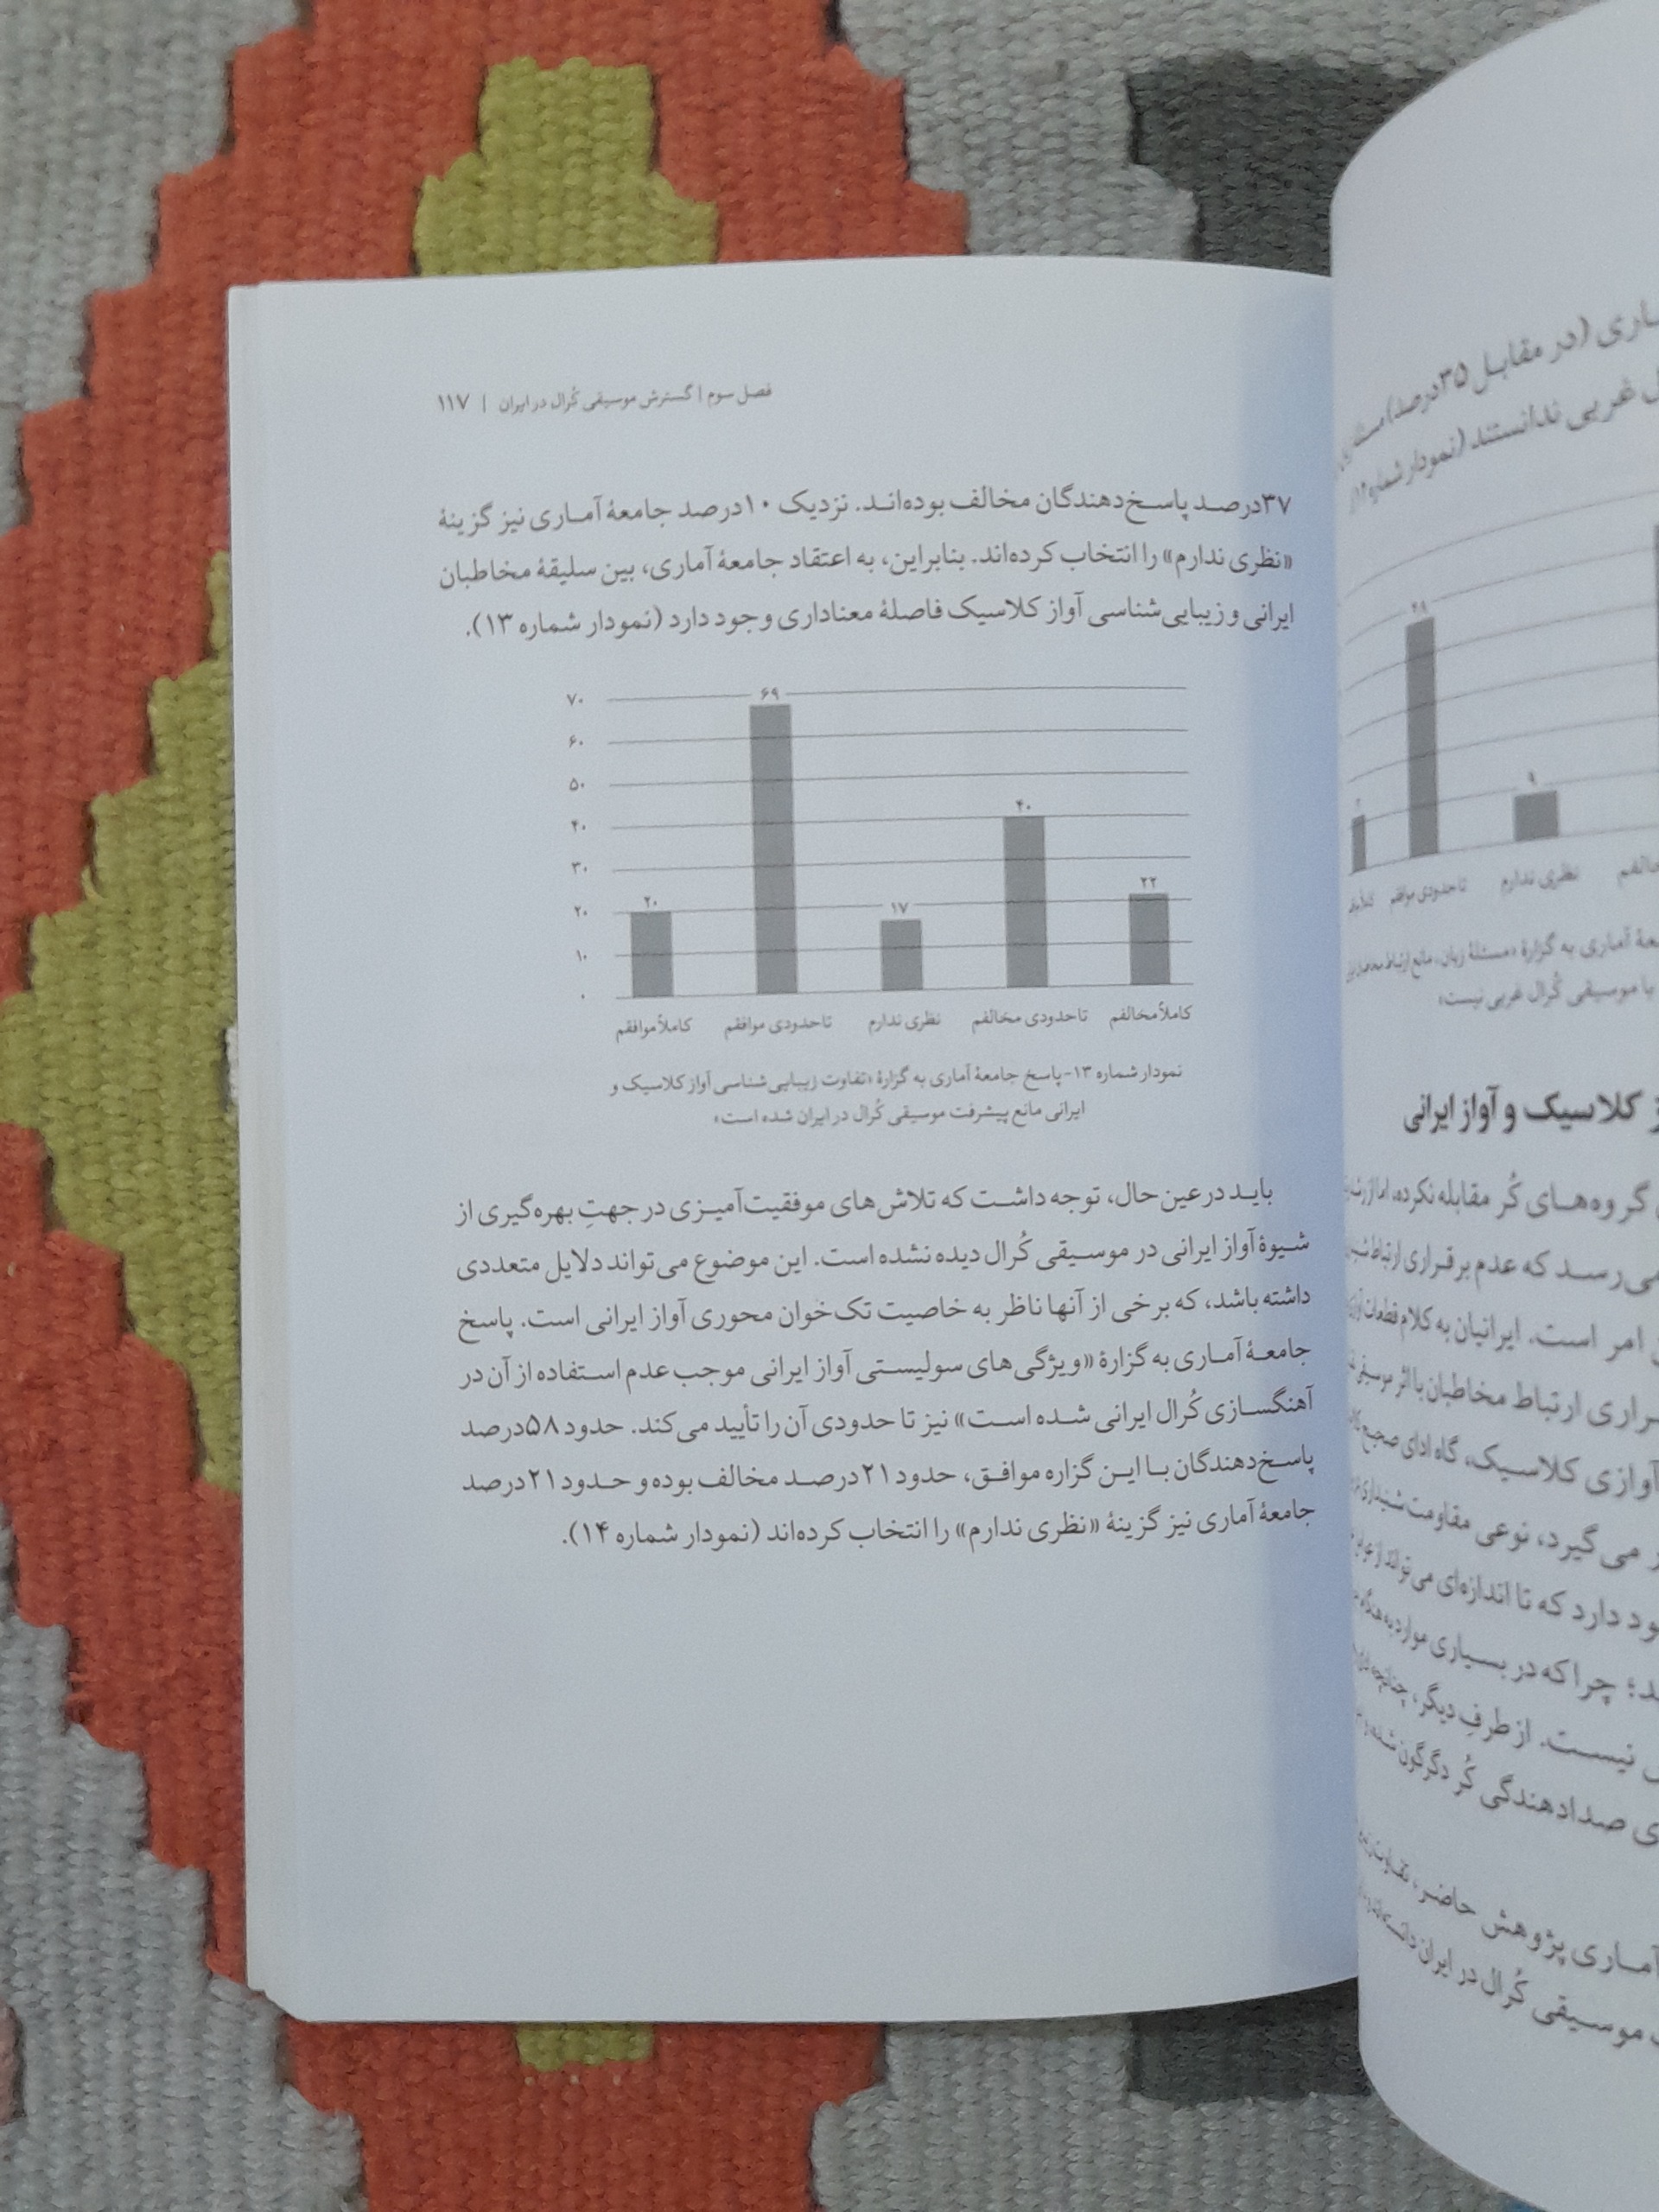 فصل سوم | گسترش موسیقی کُرال در ایران | ۱۱۷
۳۷درصد پاسخ‌دهندگان مخالف بوده‌اند. نزدیک ۱۰درصد جامعهٔ آماری نیز گزینهٔ
«نظری ندارم» را انتخاب کرده‌اند. بنابراین، به اعتقاد جامعهٔ آماری، بین سلیقهٔ مخاطبان
ایرانی و زیبایی‌شناسی آواز کلاسیک فاصلهٔ معناداری وجود دارد (نمودار شماره ۱۳).
۷۰
۶۰
۵۰
۴۰
۳۰
۲۰
۱۰
۰
۲۰
۶۹
۱۷
۴۰
۲۲
کاملاً موافقم
تا حدودی موافقم
نظری ندارم
تا حدودی مخالفم
کاملاً مخالفم
نمودار شماره ۱۳- پاسخ جامعهٔ آماری به گزارهٔ «تفاوت زیبایی‌شناسی آواز کلاسیک و
ایرانی مانع پیشرفت موسیقی کُرال در ایران شده است»
باید در عین حال، توجه داشت که تلاش‌های موفقیت‌آمیزی در جهتِ بهره‌گیری از
شیوهٔ آواز ایرانی در موسیقی کُرال دیده نشده است. این موضوع می‌تواند دلایل متعددی
داشته باشد، که برخی از آنها ناظر به خاصیت تک‌خوان محوری آواز ایرانی است. پاسخ
جامعهٔ آماری به گزارهٔ «ویژگی‌های سولیستی آواز ایرانی موجب عدم استفاده از آن در
آهنگسازی کُرال ایرانی شده است» نیز تا حدودی آن را تأیید می‌کند. حدود ۵۸درصد
پاسخ‌دهندگان با این گزاره موافق، حدود ۲۱درصد مخالف بوده و حدود ۲۱درصد
جامعهٔ آماری نیز گزینهٔ «نظری ندارم» را انتخاب کرده‌اند (نمودار شماره ۱۴).
(در مقابل ۳۵درصد)
غربی ندانستند (نمودار شماره
۴۸
۹
تا حدودی موافقم
نظری ندارم
آماری به گزارهٔ «مسئلهٔ زبان، مانع ارتباط
با موسیقی کُرال غربی نیست»
کلاسیک و آواز ایرانی
گروه‌های کُر مقابله نکرده، اما
می‌رسد که عدم برقراری ارتباط
امر است. ایرانیان به کلام قطعات
ارتباط مخاطبان با اثر
آوازی کلاسیک، گاه ادای صحیح
می‌گیرد، نوعی مقاومت شنیداری
دارد که تا اندازه‌ای می‌تواند از
چرا که در بسیاری موارد به
نیست. از طرفِ دیگر، چنانچه
صدادهندگی کُر دگرگون شده و
پژوهش حاضر، تفاوت
موسیقی کُرال در ایران